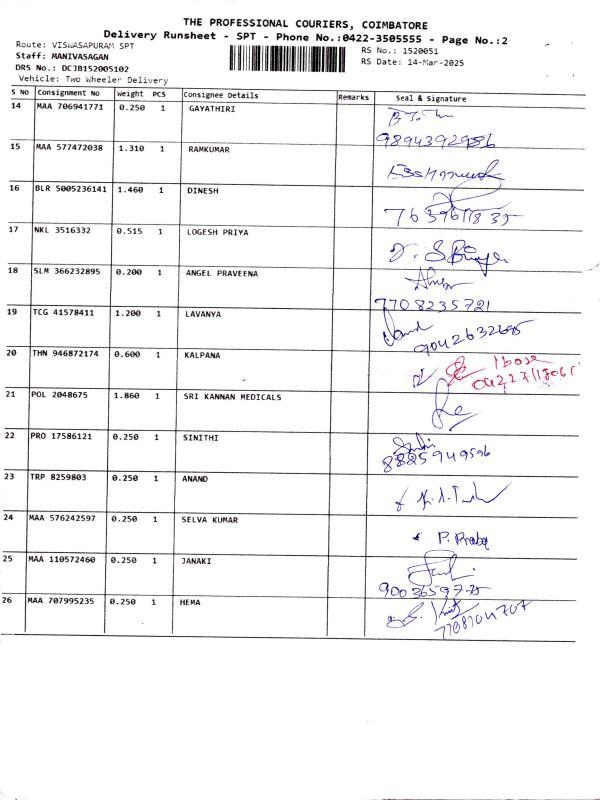 THE PROFESSIONAL COURIERS, COIMBATORE
Delivery Runsheet - SPT - Phone No.:0422-3505555 - Page No.:2
Route: VISWASAPURAM SPT
Staff: MANIVASAGAN
DRS No.: DCJB152005102
Vehicle: Two Wheeler Delivery
RS No.: 1520051
RS Date: 14-Mar-2025
S No Consignment No Weight PCS Consignee Details Remarks Seal & Signature
14 MAA 706941771 0.250 1 GAYATHIRI
9894392986
15 MAA 577472038 1.310 1 RAMKUMAR
16 BLR 5005236141 1.460 1 DINESH
17 NKL 3516332 0.515 1 LOGESH PRIYA
18 SLM 366232895 0.200 1 ANGEL PRAVEENA
7708235721
19 TCG 41578411 1.200 1 LAVANYA
9042632695
20 THN 946872174 0.600 1 KALPANA
21 POL 2048675 1.860 1 SRI KANNAN MEDICALS
22 PRO 17586121 0.250 1 SINITHI
8825949596
23 TRP 8259803 0.250 1 ANAND
24 MAA 576242597 0.250 1 SELVA KUMAR
P. Praba
25 MAA 110572460 0.250 1 JANAKI
9003659775
26 MAA 707995235 0.250 1 HEMA